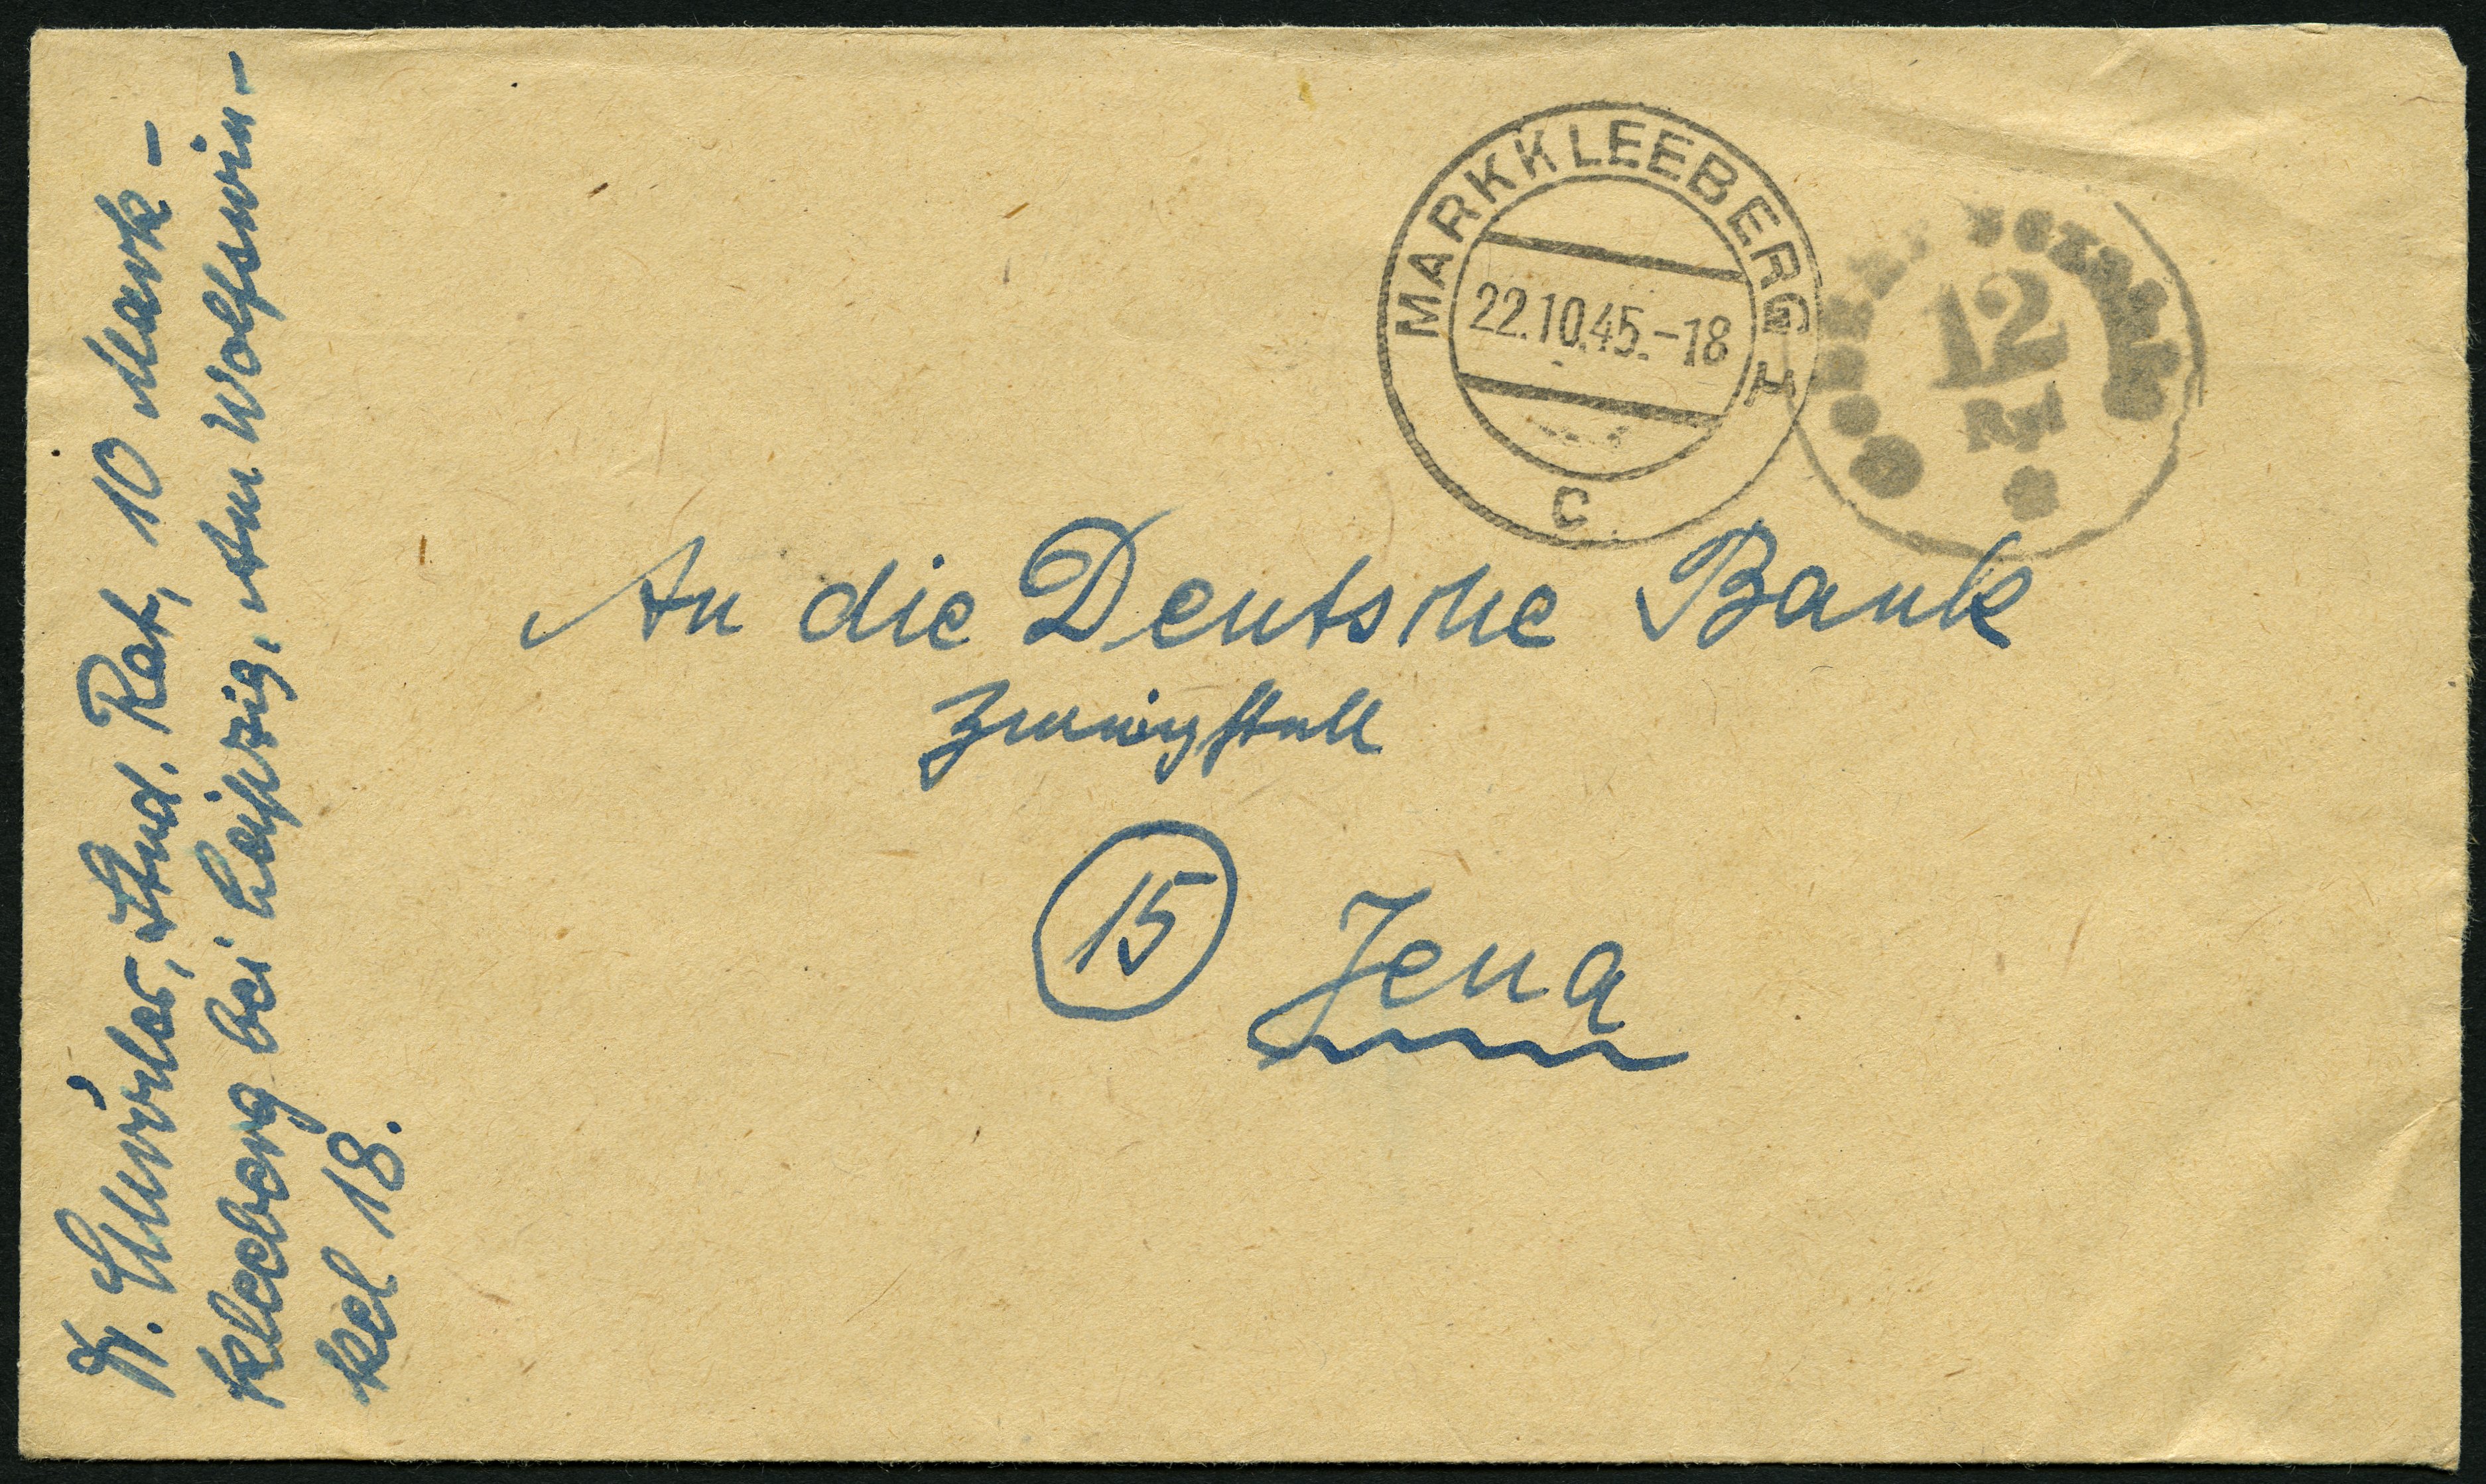 MARKKLEEBERG
22.10.45.-18
c
12
Rpf
An die Deutsche Bank
Zweigstelle
15 Jena
Dr. Stud. Rat, 10 Mark-
kleeberg bei Leipzig, Am Wolfswin-
kel 18.